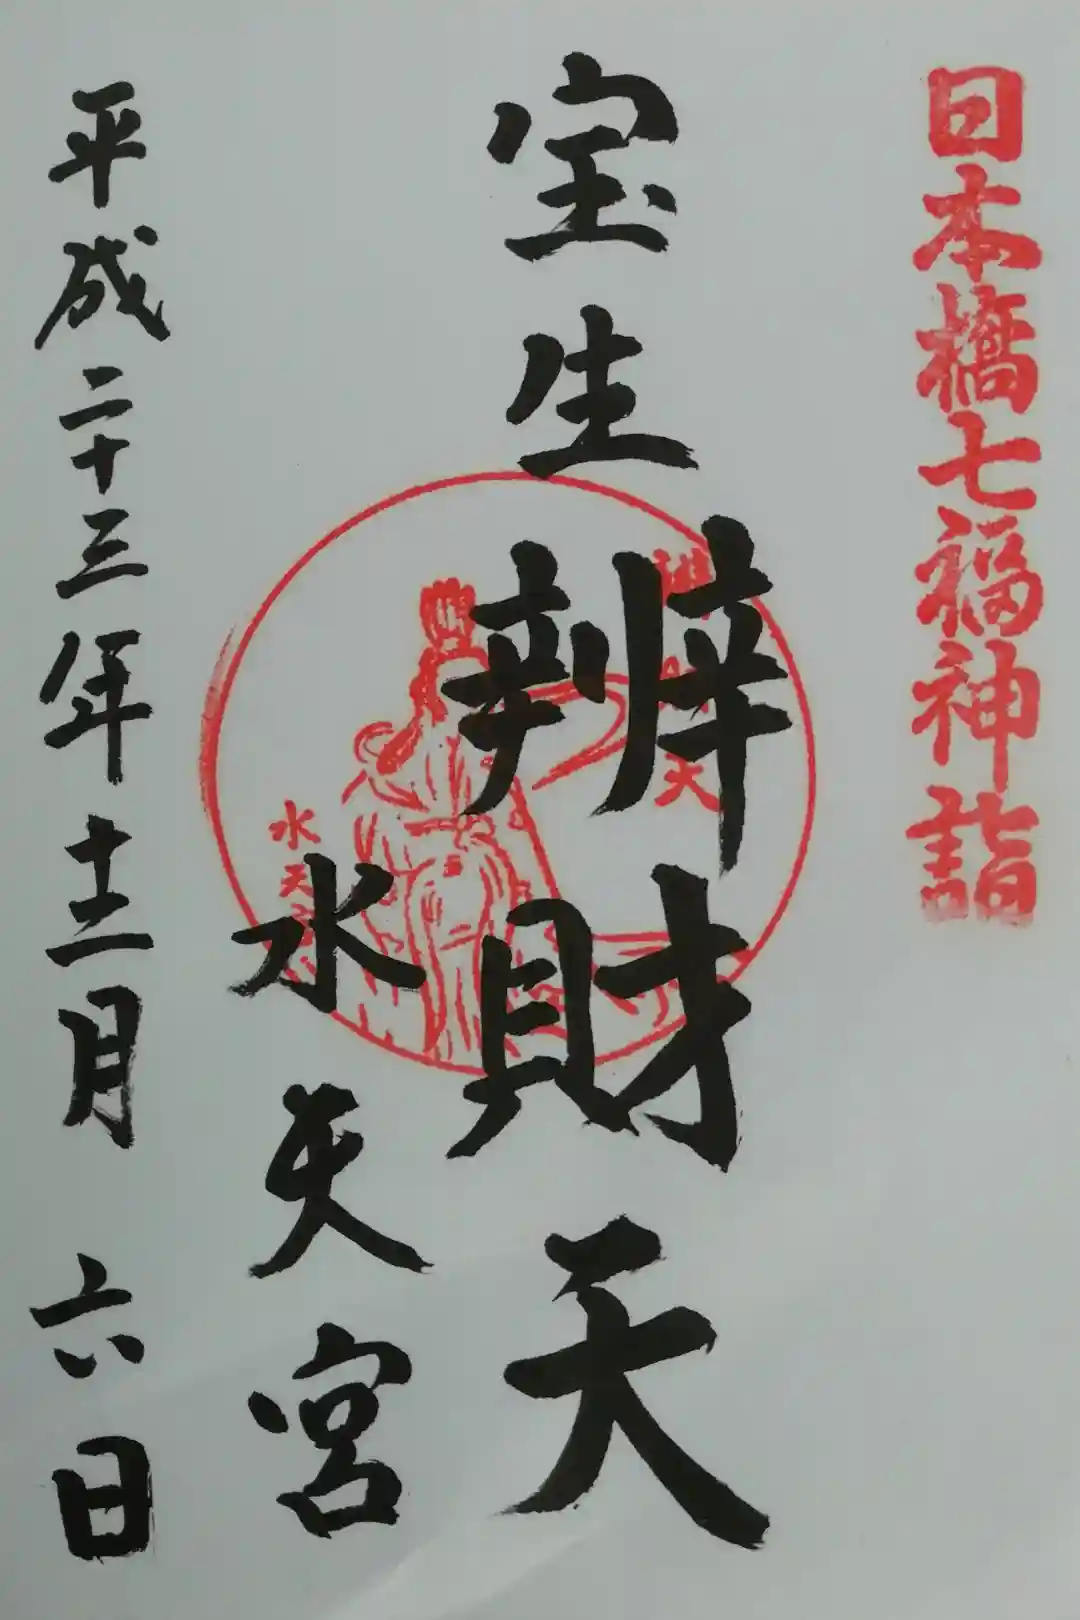 日本橋七福神詣
宝生辨財天
水天宮
平成二十三年十二月六日
水天
天